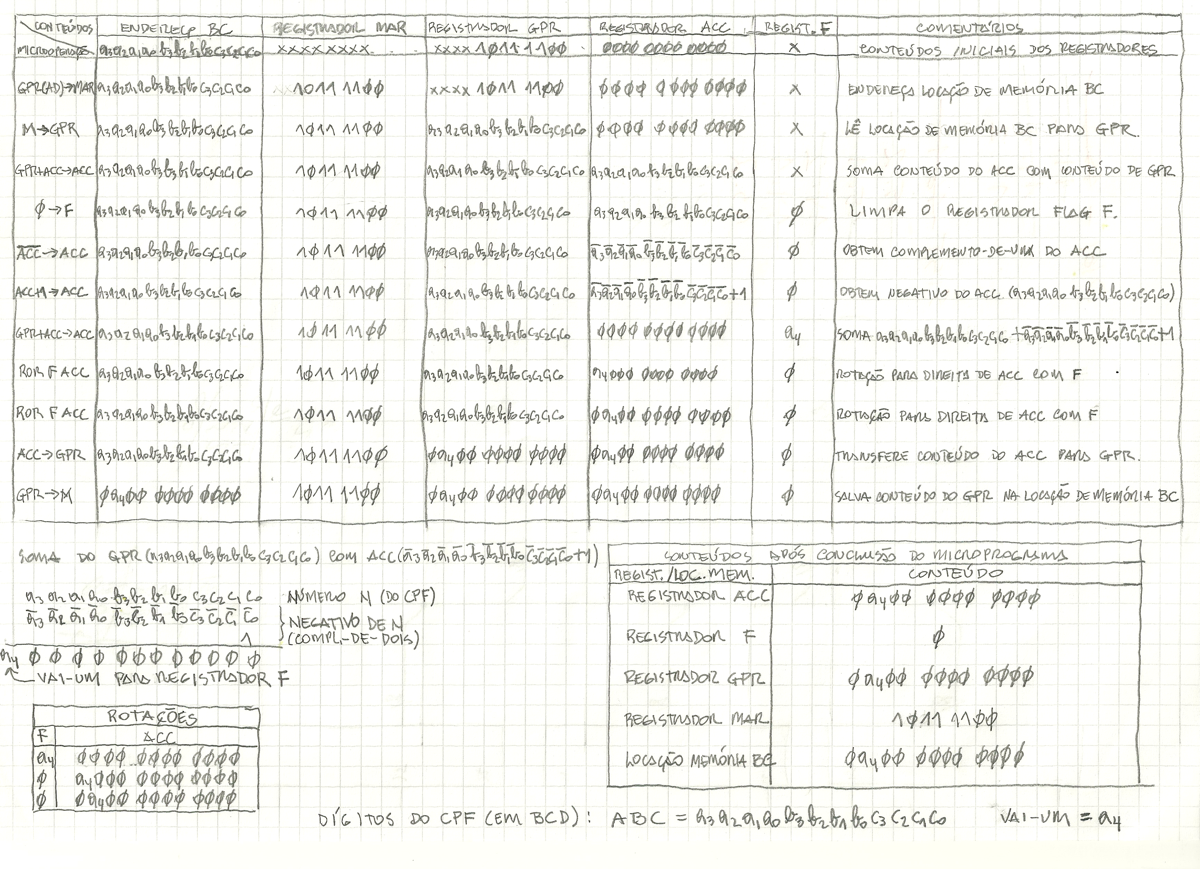 CONTEÚDOS MICROOPERAÇÃO | ENDEREÇO BC | REGISTRADOR MAR | REGISTRADOR GPR | REGISTRADOR ACC | REGIST. F | COMENTÁRIOS
a3a2a1a0b3b2b1b0c3c2c1c0 | xxxx xxxx | xxxx 1011 1100 | 0000 0000 0000 | x | CONTEÚDOS INICIAIS DOS REGISTRADORES
GPR(AD)→MAR | a3a2a1a0b3b2b1b0c3c2c1c0 | 1011 1100 | xxxx 1011 1100 | 0000 0000 0000 | x | ENDEREÇA LOCAÇÃO DE MEMÓRIA BC
M→GPR | a3a2a1a0b3b2b1b0c3c2c1c0 | 1011 1100 | a3a2a1a0b3b2b1b0c3c2c1c0 | 0000 0000 0000 | x | LÊ LOCAÇÃO DE MEMÓRIA BC PARA GPR.
GPR+ACC→ACC | a3a2a1a0b3b2b1b0c3c2c1c0 | 1011 1100 | a3a2a1a0b3b2b1b0c3c2c1c0 | a3a2a1a0b3b2b1b0c3c2c1c0 | x | SOMA CONTEÚDO DO ACC COM CONTEÚDO DE GPR
0→F | a3a2a1a0b3b2b1b0c3c2c1c0 | 1011 1100 | a3a2a1a0b3b2b1b0c3c2c1c0 | a3a2a1a0b3b2b1b0c3c2c1c0 | 0 | LIMPA O REGISTRADOR FLAG F.
A̅C̅C̅→ACC | a3a2a1a0b3b2b1b0c3c2c1c0 | 1011 1100 | a3a2a1a0b3b2b1b0c3c2c1c0 | a̅3a̅2a̅1a̅0b̅3b̅2b̅1b̅0c̅3c̅2c̅1c̅0 | 0 | OBTEM COMPLEMENTO-DE-UM DO ACC
ACC+1→ACC | a3a2a1a0b3b2b1b0c3c2c1c0 | 1011 1100 | a3a2a1a0b3b2b1b0c3c2c1c0 | a̅3a̅2a̅1a̅0b̅3b̅2b̅1b̅0c̅3c̅2c̅1c̅0+1 | 0 | OBTEM NEGATIVO DO ACC (a3a2a1a0b3b2b1b0c3c2c1c0)
GPR+ACC→ACC | a3a2a1a0b3b2b1b0c3c2c1c0 | 1011 1100 | a3a2a1a0b3b2b1b0c3c2c1c0 | 0000 0000 0000 | a4 | SOMA a3a2a1a0b3b2b1b0c3c2c1c0+a̅3a̅2a̅1a̅0b̅3b̅2b̅1b̅0c̅3c̅2c̅1c̅0+1
ROR F ACC | a3a2a1a0b3b2b1b0c3c2c1c0 | 1011 1100 | a3a2a1a0b3b2b1b0c3c2c1c0 | a4000 0000 0000 | 0 | ROTAÇÃO PARA DIREITA DE ACC COM F
ROR F ACC | a3a2a1a0b3b2b1b0c3c2c1c0 | 1011 1100 | a3a2a1a0b3b2b1b0c3c2c1c0 | 0a400 0000 0000 | 0 | ROTAÇÃO PARA DIREITA DE ACC COM F
ACC→GPR | a3a2a1a0b3b2b1b0c3c2c1c0 | 1011 1100 | 0a400 0000 0000 | 0a400 0000 0000 | 0 | TRANSFERE CONTEÚDO DO ACC PARA GPR.
GPR→M | 0a400 0000 0000 | 1011 1100 | 0a400 0000 0000 | 0a400 0000 0000 | 0 | SALVA CONTEÚDO DO GPR NA LOCAÇÃO DE MEMÓRIA BC
SOMA DO GPR (a3a2a1a0b3b2b1b0c3c2c1c0) COM ACC (a̅3a̅2a̅1a̅0b̅3b̅2b̅1b̅0c̅3c̅2c̅1c̅0+1)
a3 a2 a1 a0 b3 b2 b1 b0 c3 c2 c1 c0 NÚMERO N (DO CPF)
a̅3 a̅2 a̅1 a̅0 b̅3 b̅2 b̅1 b̅3 c̅3 c̅2 c̅1 c̅0 NEGATIVO DE N
1 (COMPL-DE-DOIS)
a4 0 0 0 0 0 0 0 0 0 0 0 0
VAI-UM PARA REGISTRADOR F
ROTAÇÕES
F | ACC
a4 | 0000 0000 0000
0 | a4000 0000 0000
0 | 0a400 0000 0000
CONTEÚDOS APÓS CONCLUSÃO DO MICROPROGRAMA
REGIST./LOC. MEM. | CONTEÚDO
REGISTRADOR ACC | 0a400 0000 0000
REGISTRADOR F | 0
REGISTRADOR GPR | 0a400 0000 0000
REGISTRADOR MAR | 1011 1100
LOCAÇÃO MEMÓRIA BC | 0a400 0000 0000
DÍGITOS DO CPF (EM BCD): ABC = a3a2a1a0b3b2b1b0c3c2c1c0 VAI-UM = a4